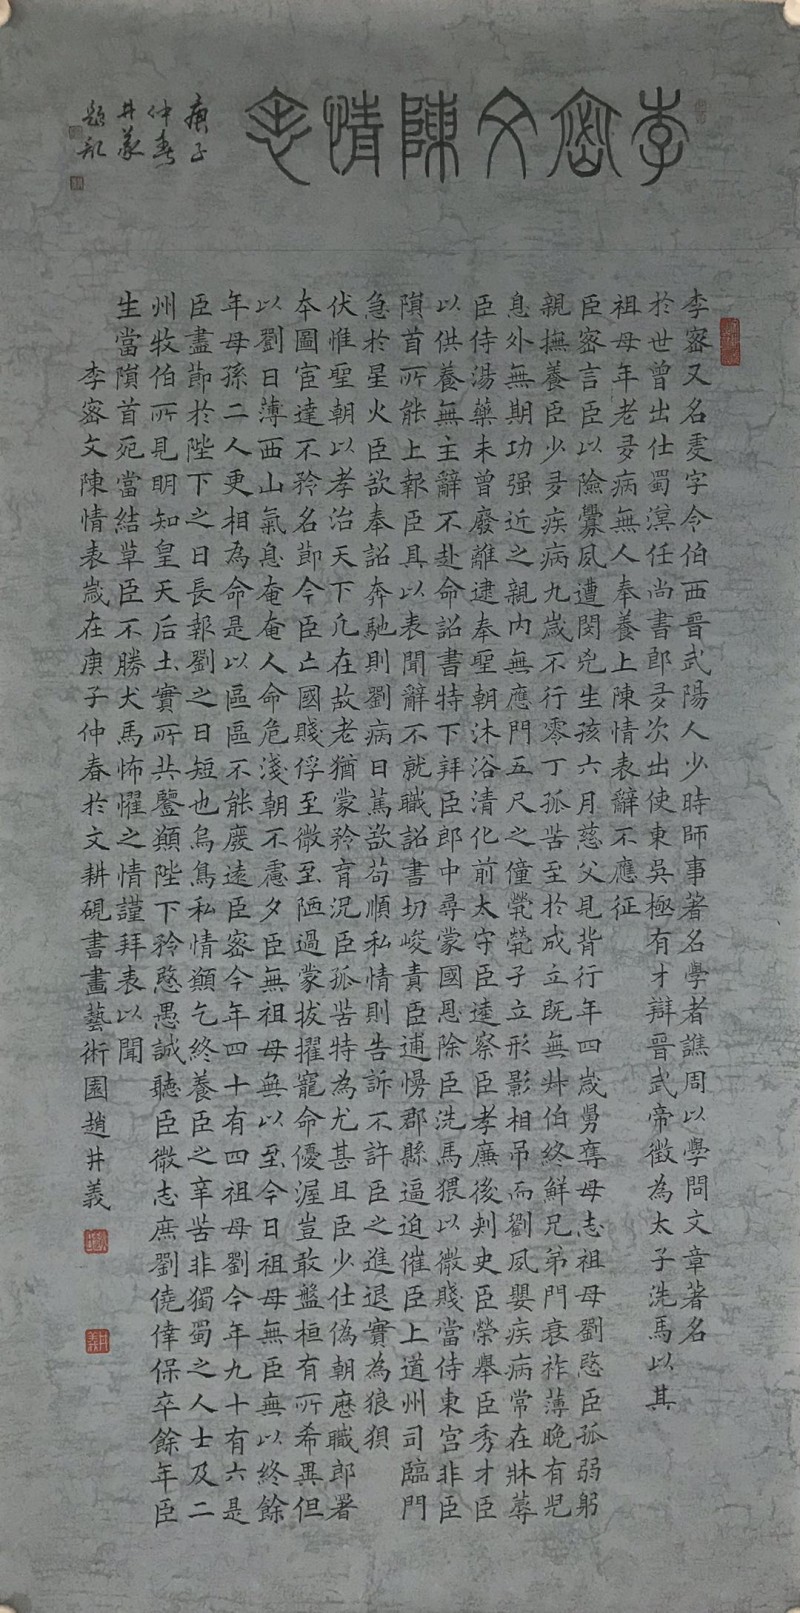 李密文陳情表
庚子
仲春
井義
題記
李密又名虔字令伯西晉武陽人少時師事著名學者譙周以學問文章著名
於世曾出仕蜀漢任尚書郎多次出使東吳極有才辯晉武帝徵為太子洗馬以其
祖母年老多病無人奉養上陳情表辭不應征
臣密言臣以險釁夙遭閔兇生孩六月慈父見背行年四歲舅奪母志祖母劉愍臣孤弱躬
親撫養臣少多疾病九歲不行零丁孤苦至於成立既無叔伯終鮮兄弟門衰祚薄晚有兒
息外無期功强近之親內無應門五尺之僮煢煢孑立形影相吊而劉夙嬰疾病常在牀蓐
臣侍湯藥未曾廢離逮奉聖朝沐浴清化前太守臣逵察臣孝廉後刺史臣榮舉臣秀才臣
以供養無主辭不赴命詔書特下拜臣郎中尋蒙國恩除臣洗馬猥以微賤當侍東宮非臣
隕首所能上報臣具以表聞辭不就職詔書切峻責臣逋慢郡縣逼迫催臣上道州司臨門
急於星火臣欲奉詔奔馳則劉病日篤欲苟順私情則告訴不許臣之進退實為狼狽
伏惟聖朝以孝治天下凡在故老猶蒙矜育況臣孤苦特為尤甚且臣少仕偽朝歷職郎署
本圖宦達不矜名節今臣亡國賤俘至微至陋過蒙拔擢寵命優渥豈敢盤桓有所希冀但
以劉日薄西山氣息奄奄人命危淺朝不慮夕臣無祖母無以至今日祖母無臣無以終餘
年母孫二人更相為命是以區區不能廢遠臣密今年四十有四祖母劉今年九十有六是
臣盡節於陛下之日長報劉之日短也烏鳥私情願乞終養臣之辛苦非獨蜀之人士及二
州牧伯所見明知皇天后土實所共鑒願陛下矜愍愚誠聽臣微志庶劉僥倖保卒餘年臣
生當隕首死當結草臣不勝犬馬怖懼之情謹拜表以聞
李密文陳情表歲在庚子仲春於文耕硯書畫藝術園趙井義